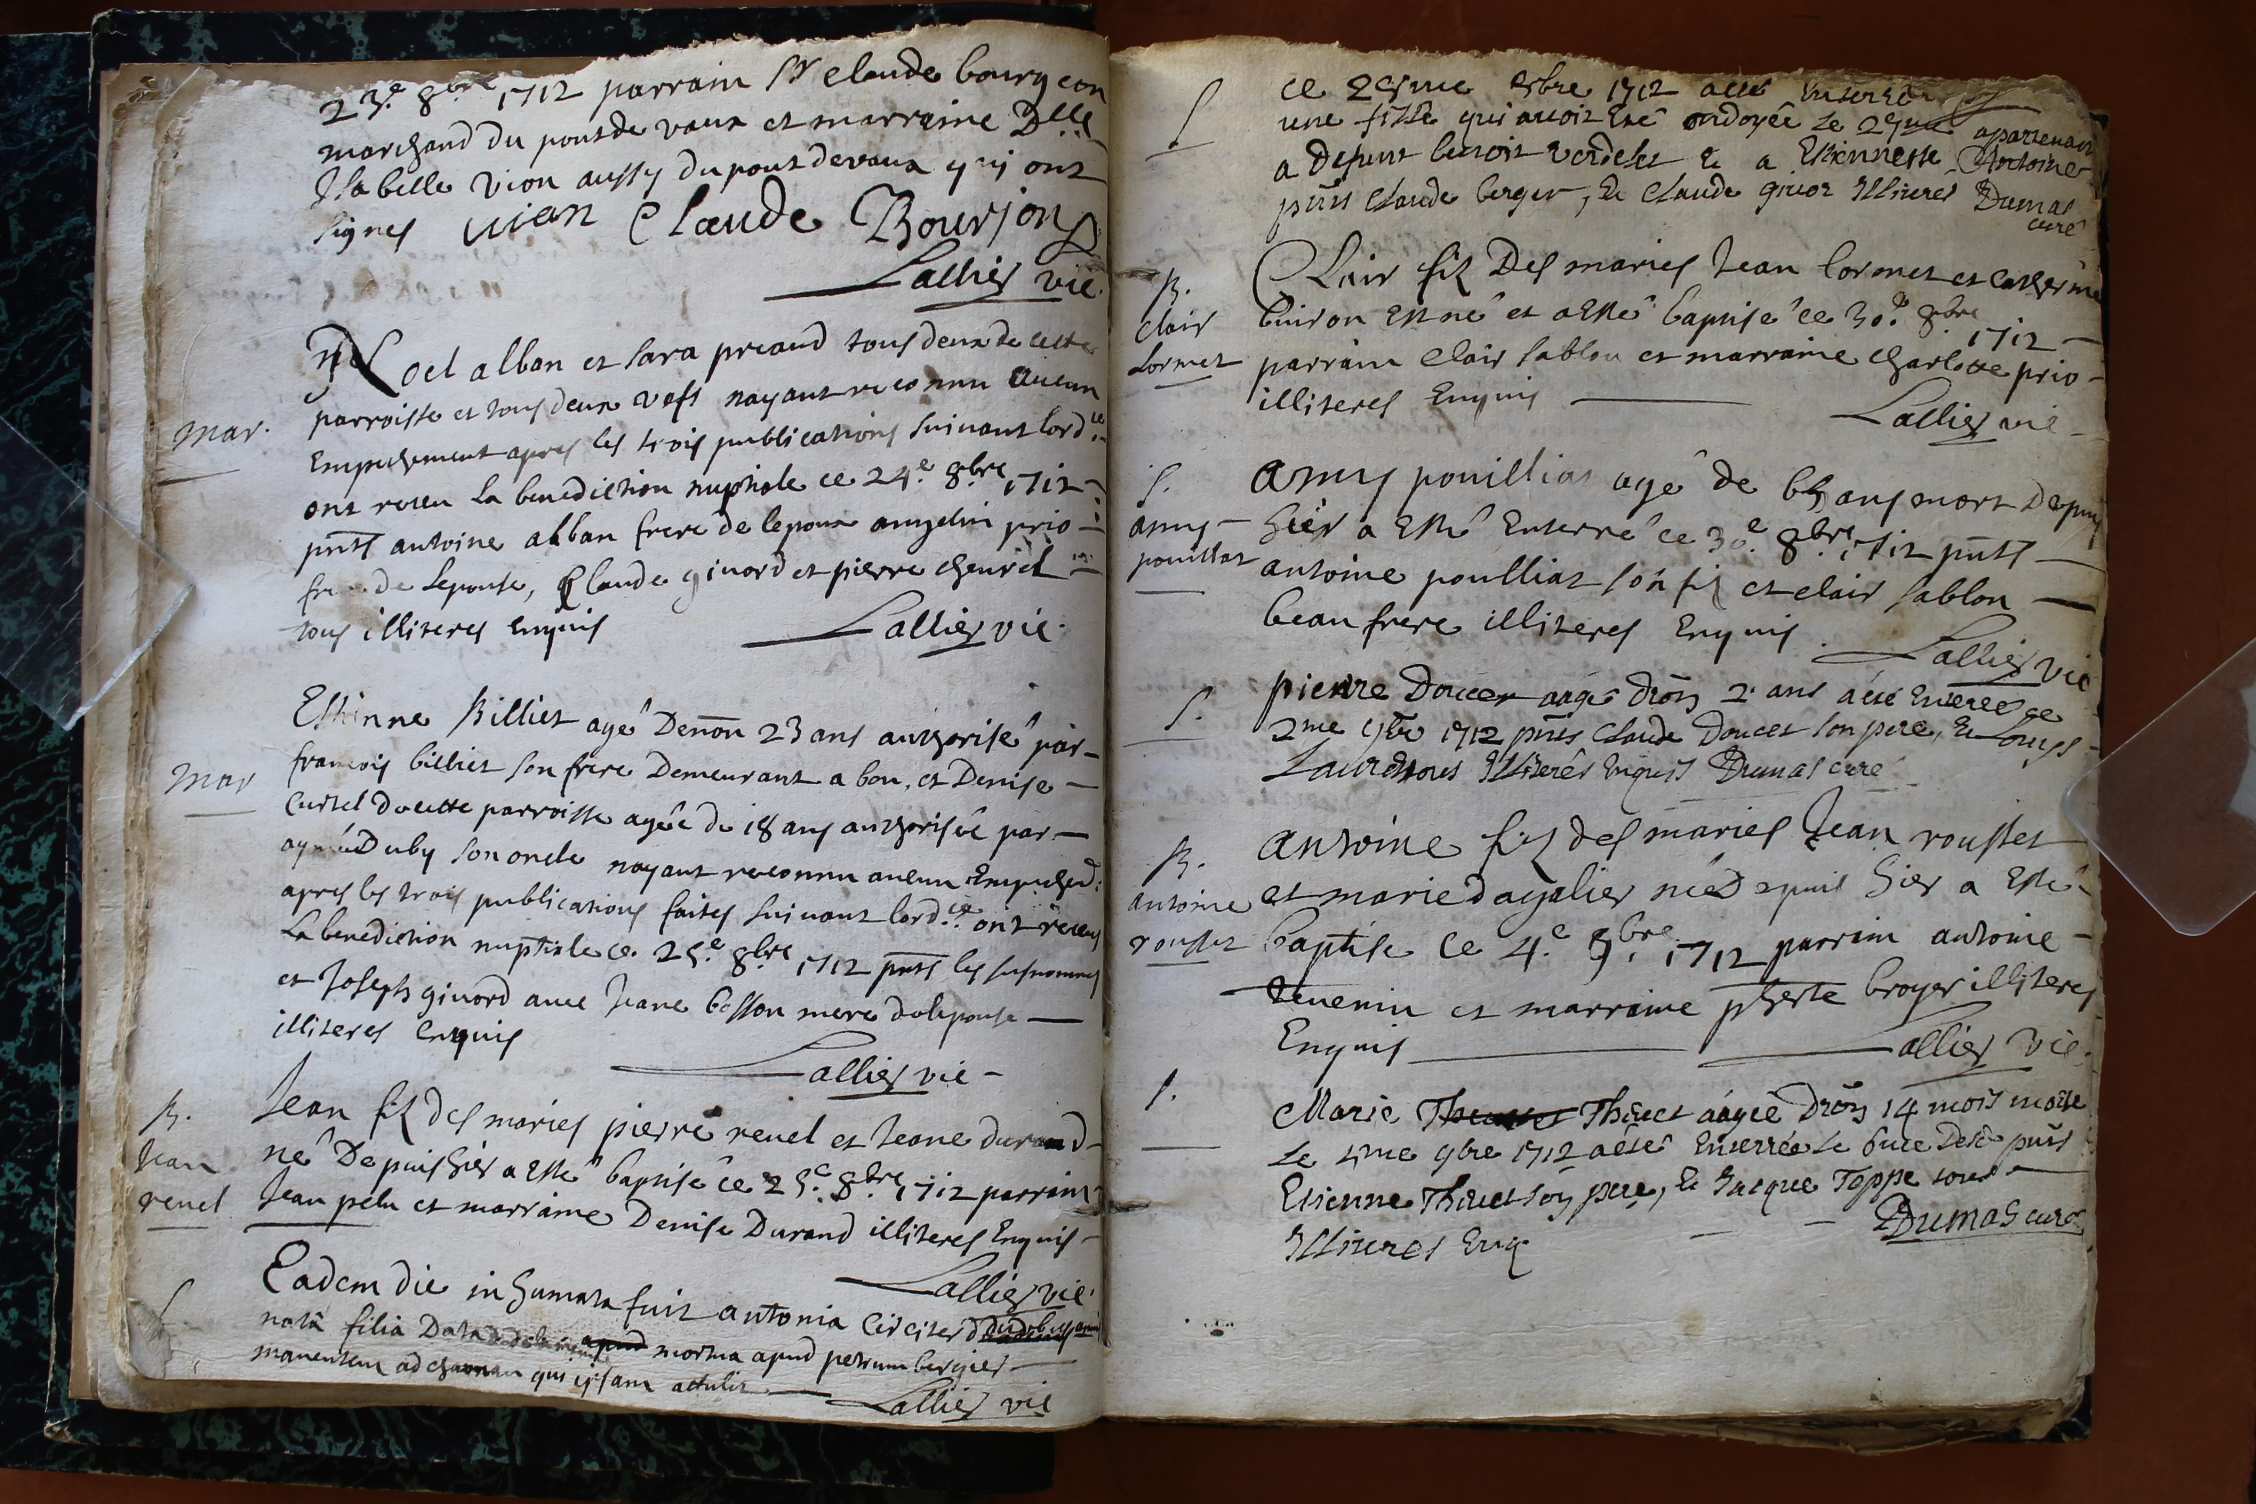 23.e 8bre 1712 parrain Sr claude bourgeon
marchand du pont de vaux et marraine Dlle
Isabelle vion aussy du pont devaux qui ont
signes vion Claude Bourjon
Lallier vic.
mar.
Noel alban et sara preaud tous deux de cette
parroisse et tous deux vefs nayant reconnu aucun
Empechement apres les trois publications suivant lord.ce
ont receu la benediction nuptiale ce 24.e 8bre 1712
pnts antoine alban frere de lepoux prio
frere de lepouse, Claude givord et pierre
tous illiteres Enquis Lallier vic.
mar
Estienne Billiet agé Denon 23 ans authorisé par
francois billiet son frere Demeurant a bou, et Denise
Curtel de cette parroisse agée de 18 ans authorisée par
aymé Duby son oncle nayant reconnu aucun Empeched:
apres les trois publications faites suivant lord.ce ont receus
La benediction nuptiale ce 25.e 8bre 1712 pnts les susnommes
et Joseph givord avec Jeane bosson mere de lepouse
illiteres Enquis
Lallier vic
B.
Jean
revel
Jean fiz des maries pierre revel et Jeane durand
né Depuis hier a esté baptisé ce 25.e 8bre 1712 parrain
Jean pelu et marraine Denise Durand illiteres Enquis
Lallier vic.
S
Eadem die inhumata fuit antonia circiter duobus annis
nata filia Data apud mortua apud petrum bergier
manentem ad qui ipsam attulit
Lallier vic
S
ce 29me 8bre 1712 a esté Enterrée
une fille qui avoit Esté ondoyée le 29me apartenant
a Defunt benoit verdelet & a Estiennette Antoine
pnts Claude berger, & Claude givor Illiteres Dumas
curé
B.
Clair
Lormet
Clair fiz Des maries Jean Lormet et catherine
buiron Est né et a Esté baptisé ce 30.e 8bre 1712
parrain Clair sablon et marraine charlotte prio
illiteres Enquis Lallier vic
S.
amy
pouillat
amy pouilliat agé de 65 ans mort Depuis
hier a Esté Enterré ce 30.e 8bre 1712 pnts
antoine poulliat son fiz et clair sablon
beau frere illiteres Enquis.
Lallier vic
S.
pierre Doucet aagé dron 2 ans a été Enterré ce
2me 9bre 1712 pnts Claude Doucet son pere, & Louys
Laurd tous Illiterés Enquis Dumas curé
B.
antoine
rousset
antoine fiz des maries Jean rousset
et marie dagalier né depuis hier a Esté
baptisé ce 4.e 9bre 1712 parrin antoine
tevenin et marraine pherte broyer illiteres
Enquis Lallier vic.
S.
Marie Thevet aagée Dron 14 mois morte
Le 5me 9bre 1712 a esté Enterrée le 6me pnts
Etienne Thevet son pere, & Jacque Toppe tous
Illiteres Enq Dumas curé